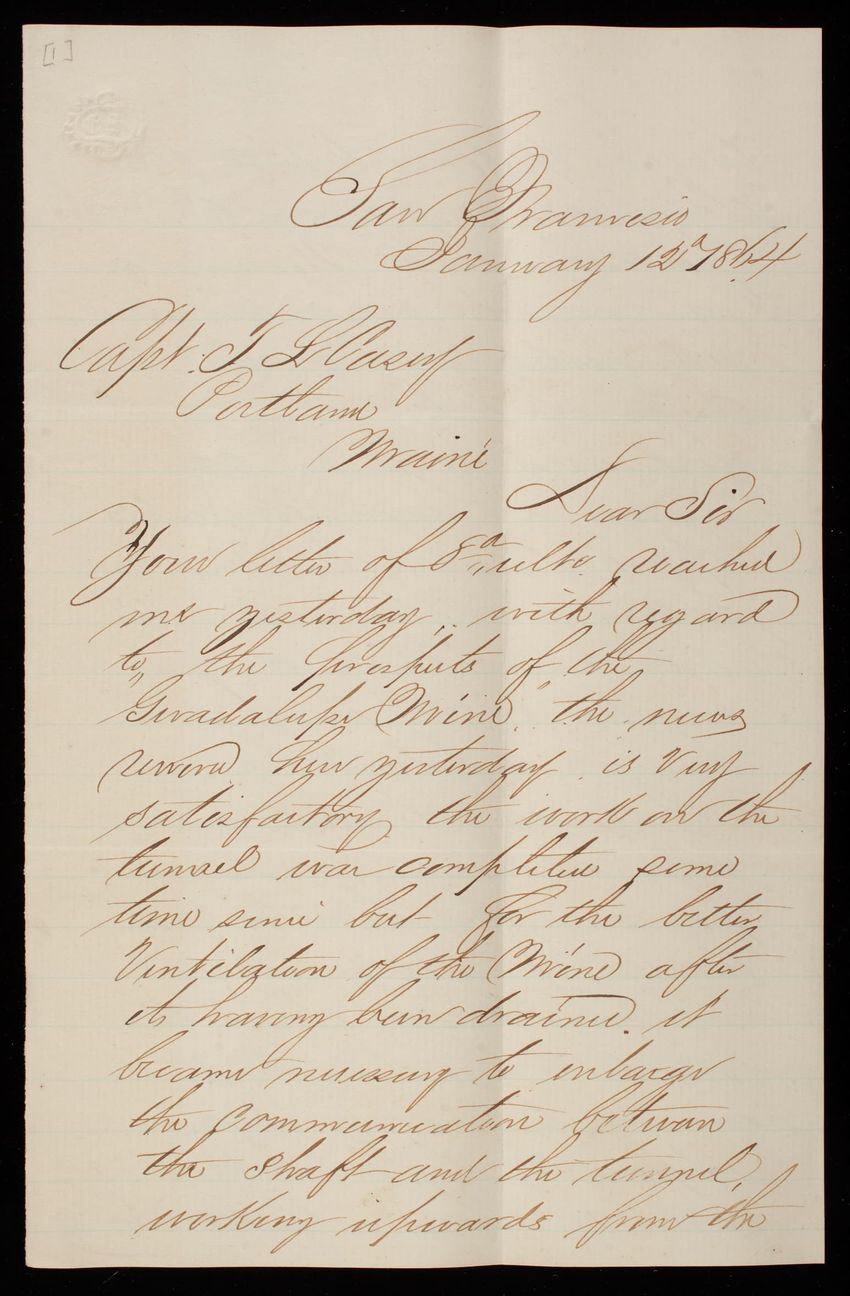 [1]
San Francisco
January 12th 1864
Capt. T L Casey
Portland
Maine
Dear Sir
Your letter of 8th ulto. reached
me yesterday, with regard
to, the prospects of the
Guadalupe Mine, the news
received here yesterday is very
satisfactory the work on the
tunnel was completed some
time since but for the better
Ventilation of the Mine after
its having been drained. it
became necessary to enlarge
the communication between
the shaft and the tunnel,
working upwards from the